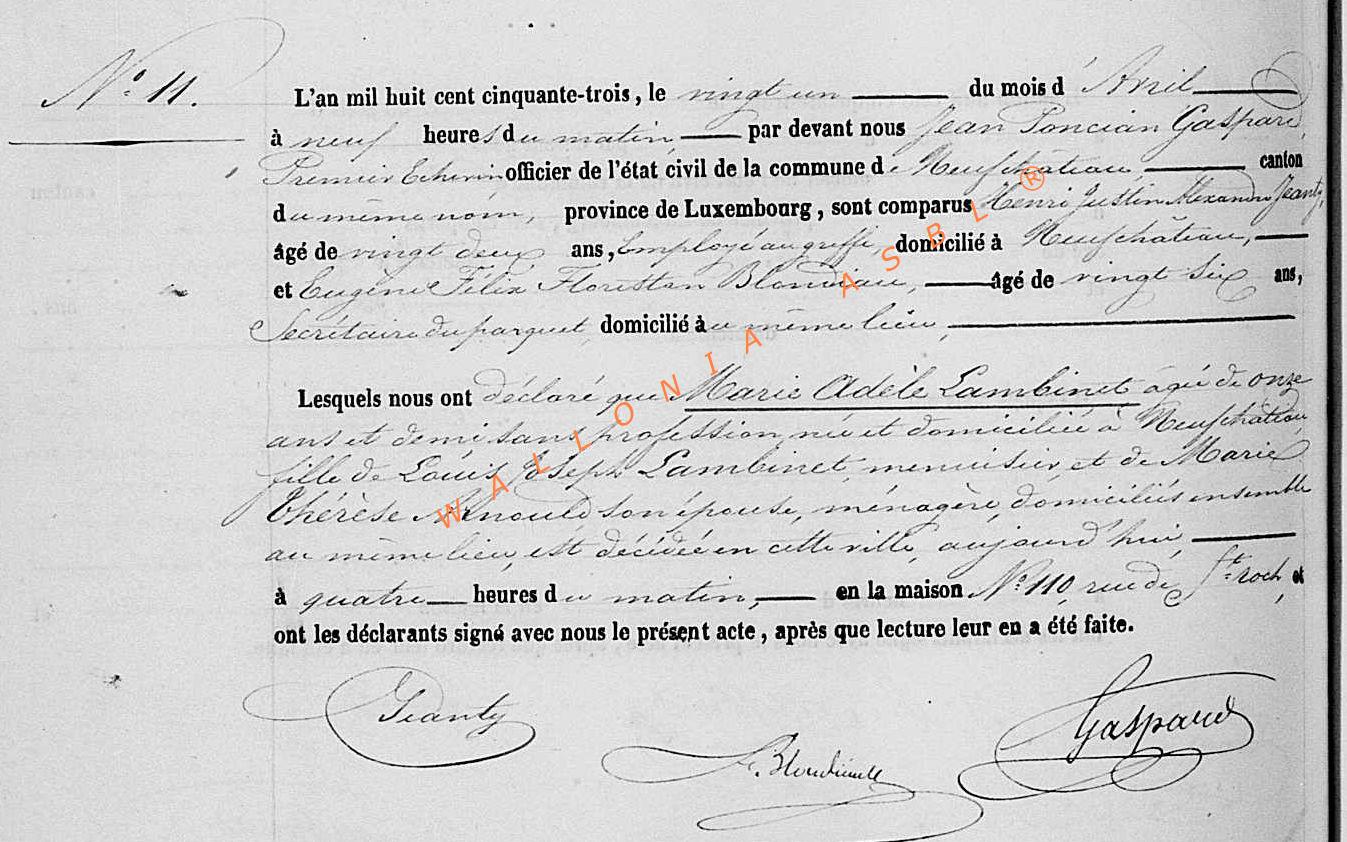 N.° 11.
L'an mil huit cent cinquante-trois, le vingt un du mois d'Avril
à neuf heures du matin, par devant nous Jean Poncian Gaspard,
Premier Echevin officier de l'état civil de la commune de Neufchâteau, canton
du même nom, province de Luxembourg, sont comparus Henri Justin Alexandre Jeanty,
âgé de vingt deux ans, Employé au greffe, domicilié à Neufchâteau,
et Eugène Félix Florestan Blondiau, âgé de vingt six ans,
Secrétaire du parquet, domicilié au même lieu,
Lesquels nous ont déclaré que Marie Adèle Lambinet agée de onze
ans et demi sans profession, née et domiciliée à Neufchâteau
fille de Louis Joseph Lambinet, menuisier et de Marie
Thérèse Arnould son épouse, ménagère, domiciliés ensemble
au même lieu, est décédée en cette ville, aujourd'hui,
à quatre heures du matin, en la maison N.° 110, rue de St. roch, et
ont les déclarants signé avec nous le présent acte, après que lecture leur en a été faite.
Jeanty
Gaspard
WALLONIA ASBL ®